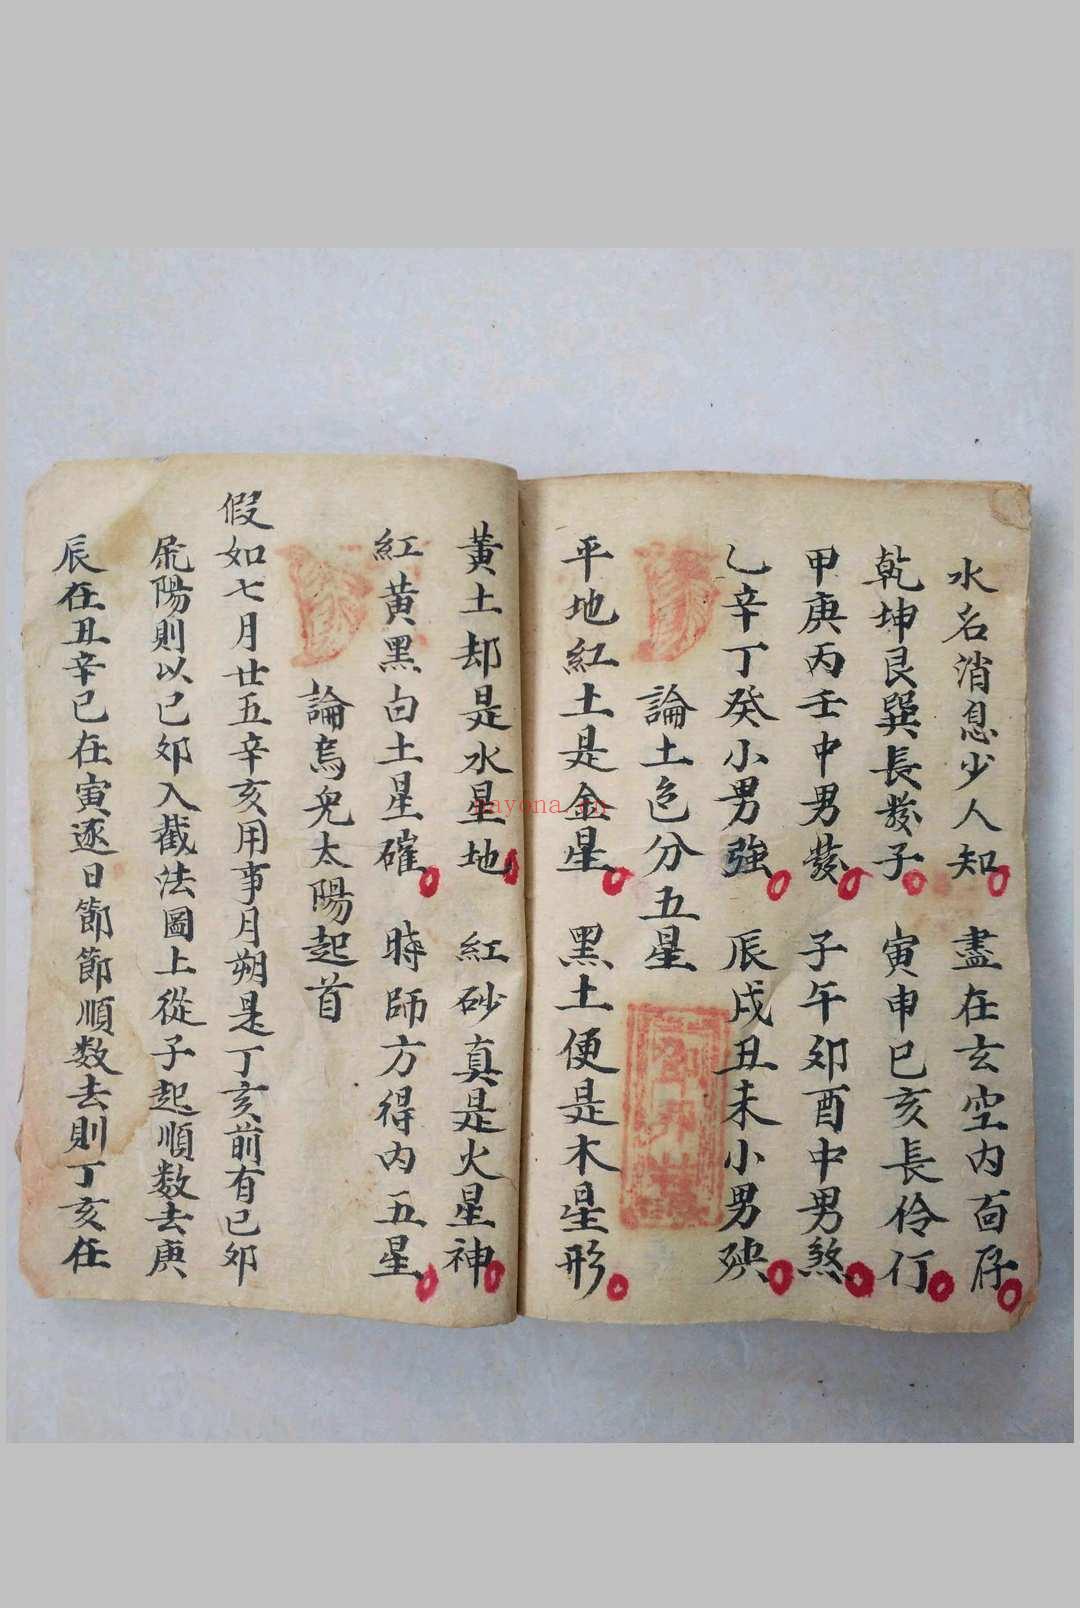 水名消息少人知 盡在玄空内面存
乾坤艮巽長發子 寅申巳亥長伶仃
甲庚丙壬中男發 子午卯酉中男煞
乙辛丁癸小男強 辰戌丑未小男殃
論土色分五星
平地紅土是金星 黑土便是木星形
黃土却是水星地 紅砂真是火星神
紅黃黑白土星確 時師方得内五星
論烏兔太陽起首
假如七月廿五辛亥用事月朔是丁亥前有己卯
陽則以己卯入截法圖上從子起順数去庚
辰在丑辛巳在寅逐日節節順数去則丁亥在
nayona.cn